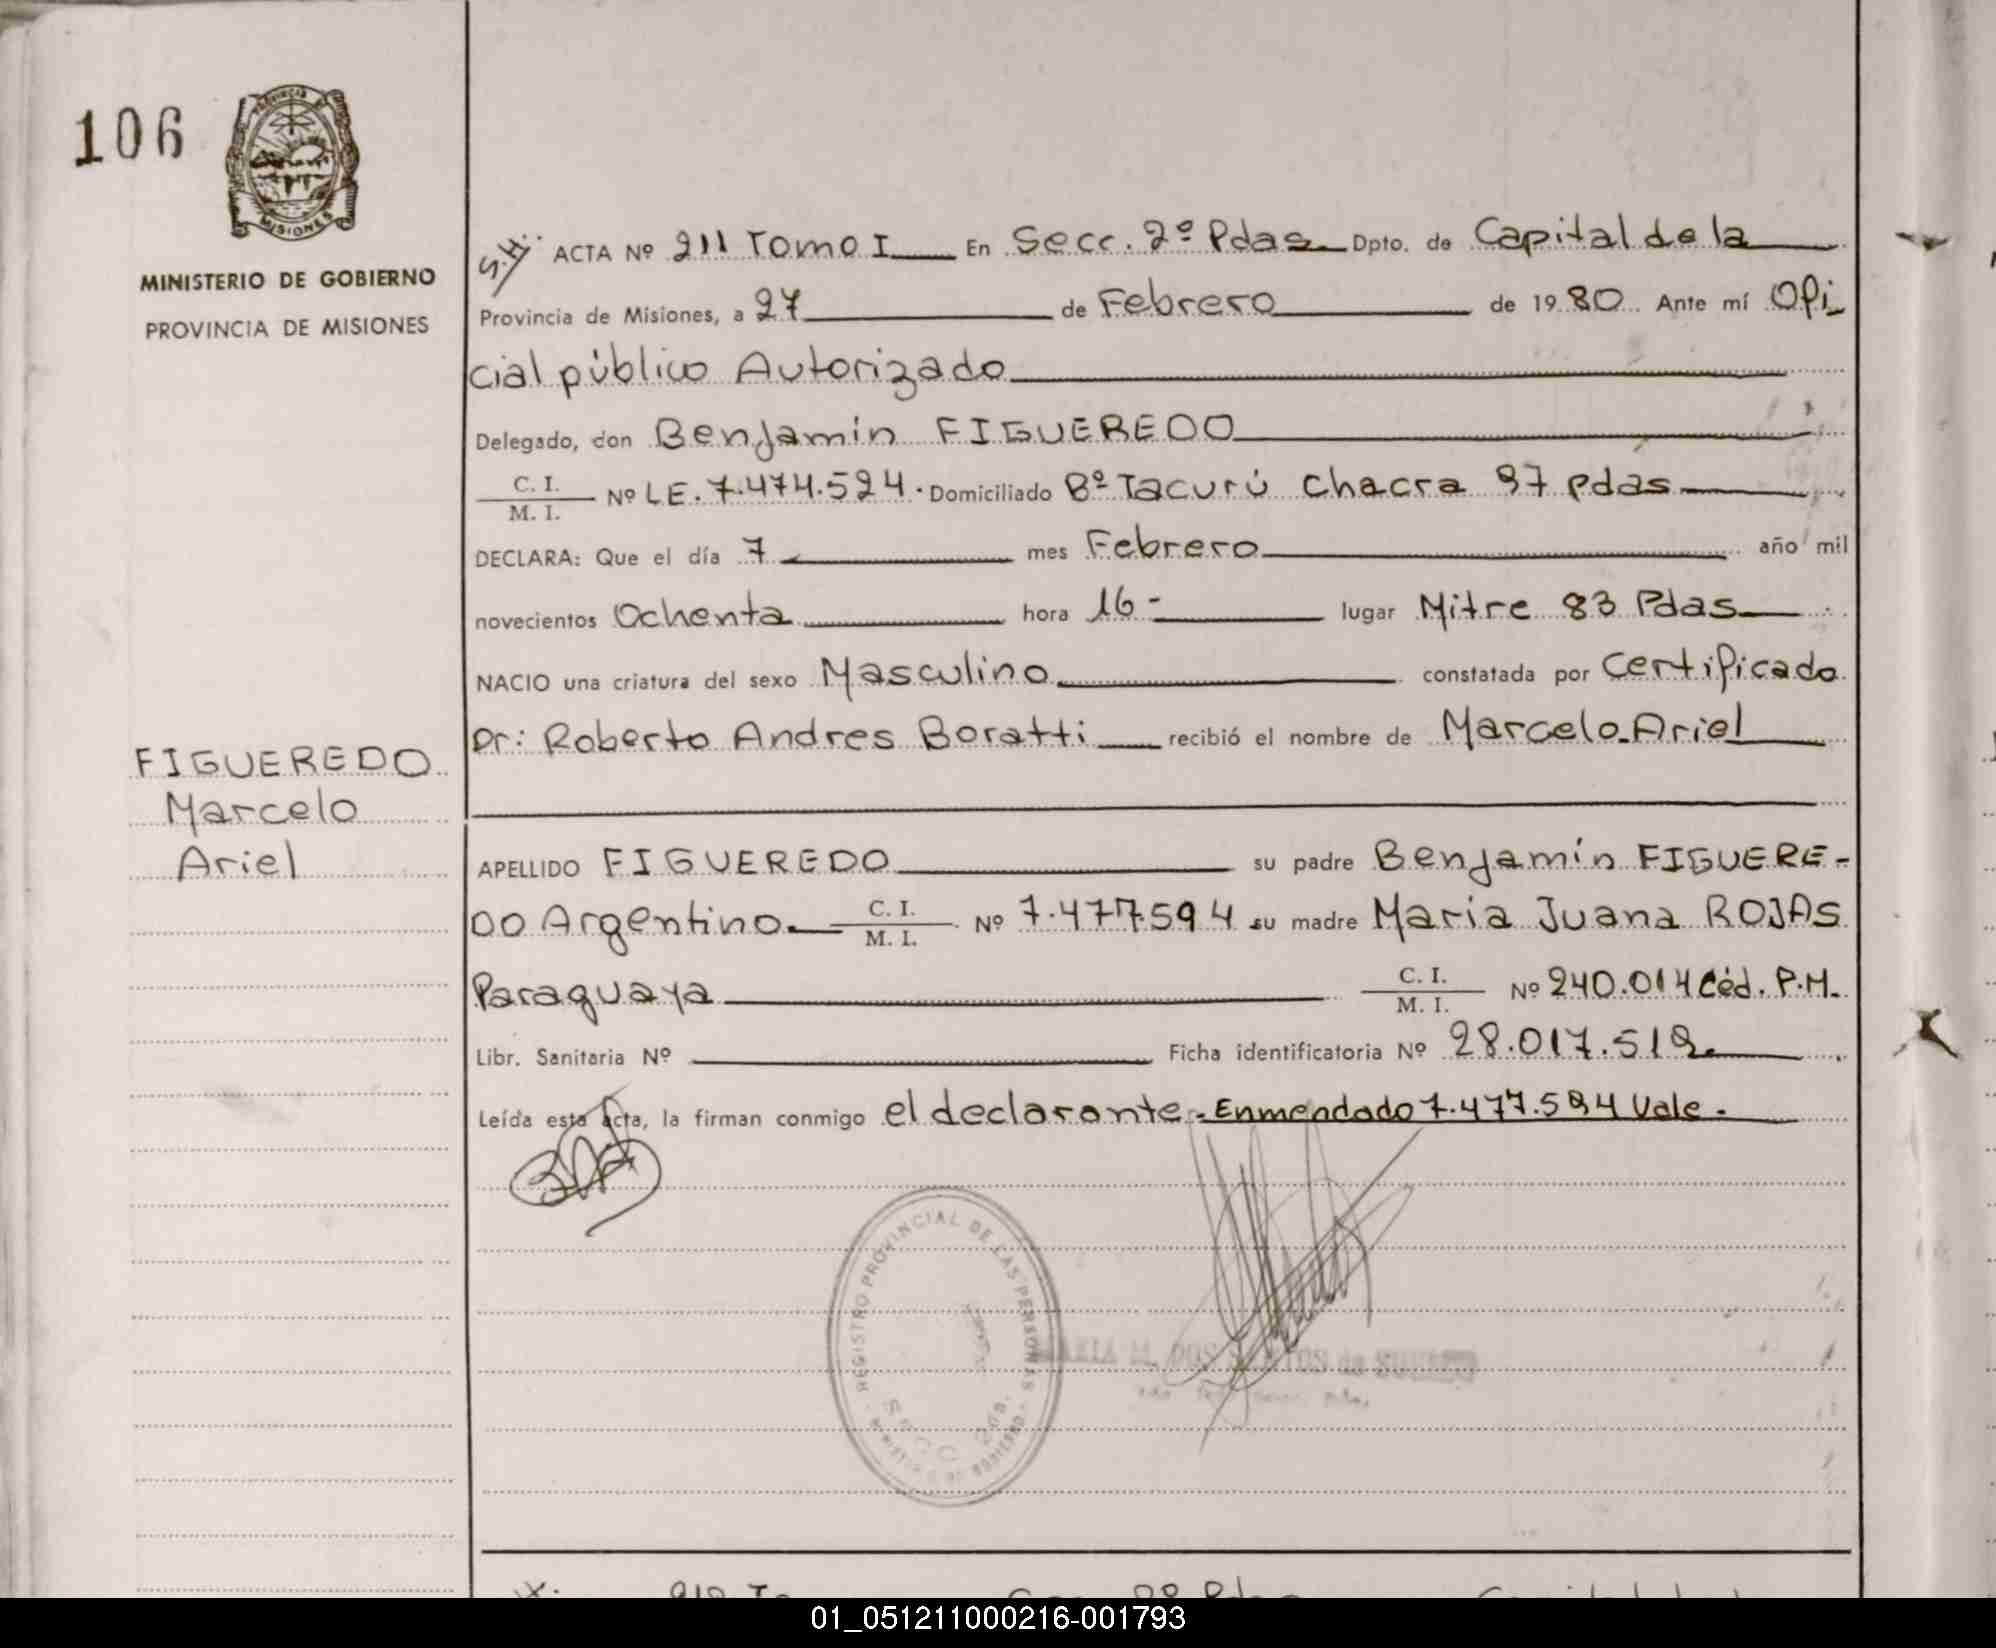 106
PROVINCIA DE
MISIONES
MINISTERIO DE GOBIERNO
PROVINCIA DE MISIONES
S.H. ACTA Nº 211 Tomo I En Secc. 2º Pdas. Dpto. de Capital de la
Provincia de Misiones, a 27 de Febrero de 1980. Ante mí Ofi
cial público Autorizado
Delegado, don Benjamín FIGUEREDO
C. I.
M. I. Nº LE. 7.474.594. Domiciliado Bº Tacurú Chacra 97 pdas
DECLARA: Que el día 7 mes Febrero año mil
novecientos Ochenta hora 16- lugar Mitre 83 Pdas
NACIO una criatura del sexo Masculino constatada por Certificado
Dr: Roberto Andres Boratti recibió el nombre de Marcelo Ariel
FIGUEREDO
Marcelo
Ariel
APELLIDO FIGUEREDO su padre Benjamín FIGUERE-
DO Argentino. C. I.
M. I. Nº 7.477.594 su madre Maria Juana ROJAS
Paraguaya C. I.
M. I. Nº 240.014 Céd. P.M.
Libr. Sanitaria Nº Ficha identificatoria Nº 28.017.512.
Leída esta acta, la firman conmigo el declarante. Enmendado 7.477.594 Vale.
REGISTRO PROVINCIAL DE LAS PERSONAS
SECC. 2da.
MINISTERIO DE GOBIERNO
01_051211000216-001793